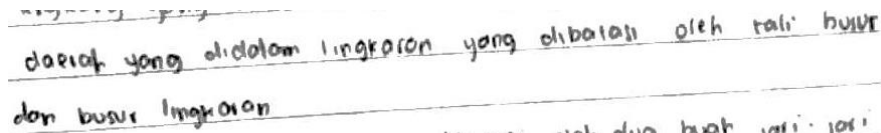 daerah yang didalam lingkaran yang dibatasi oleh tali busur
dan busur lingkaran
dua buah jari-jari